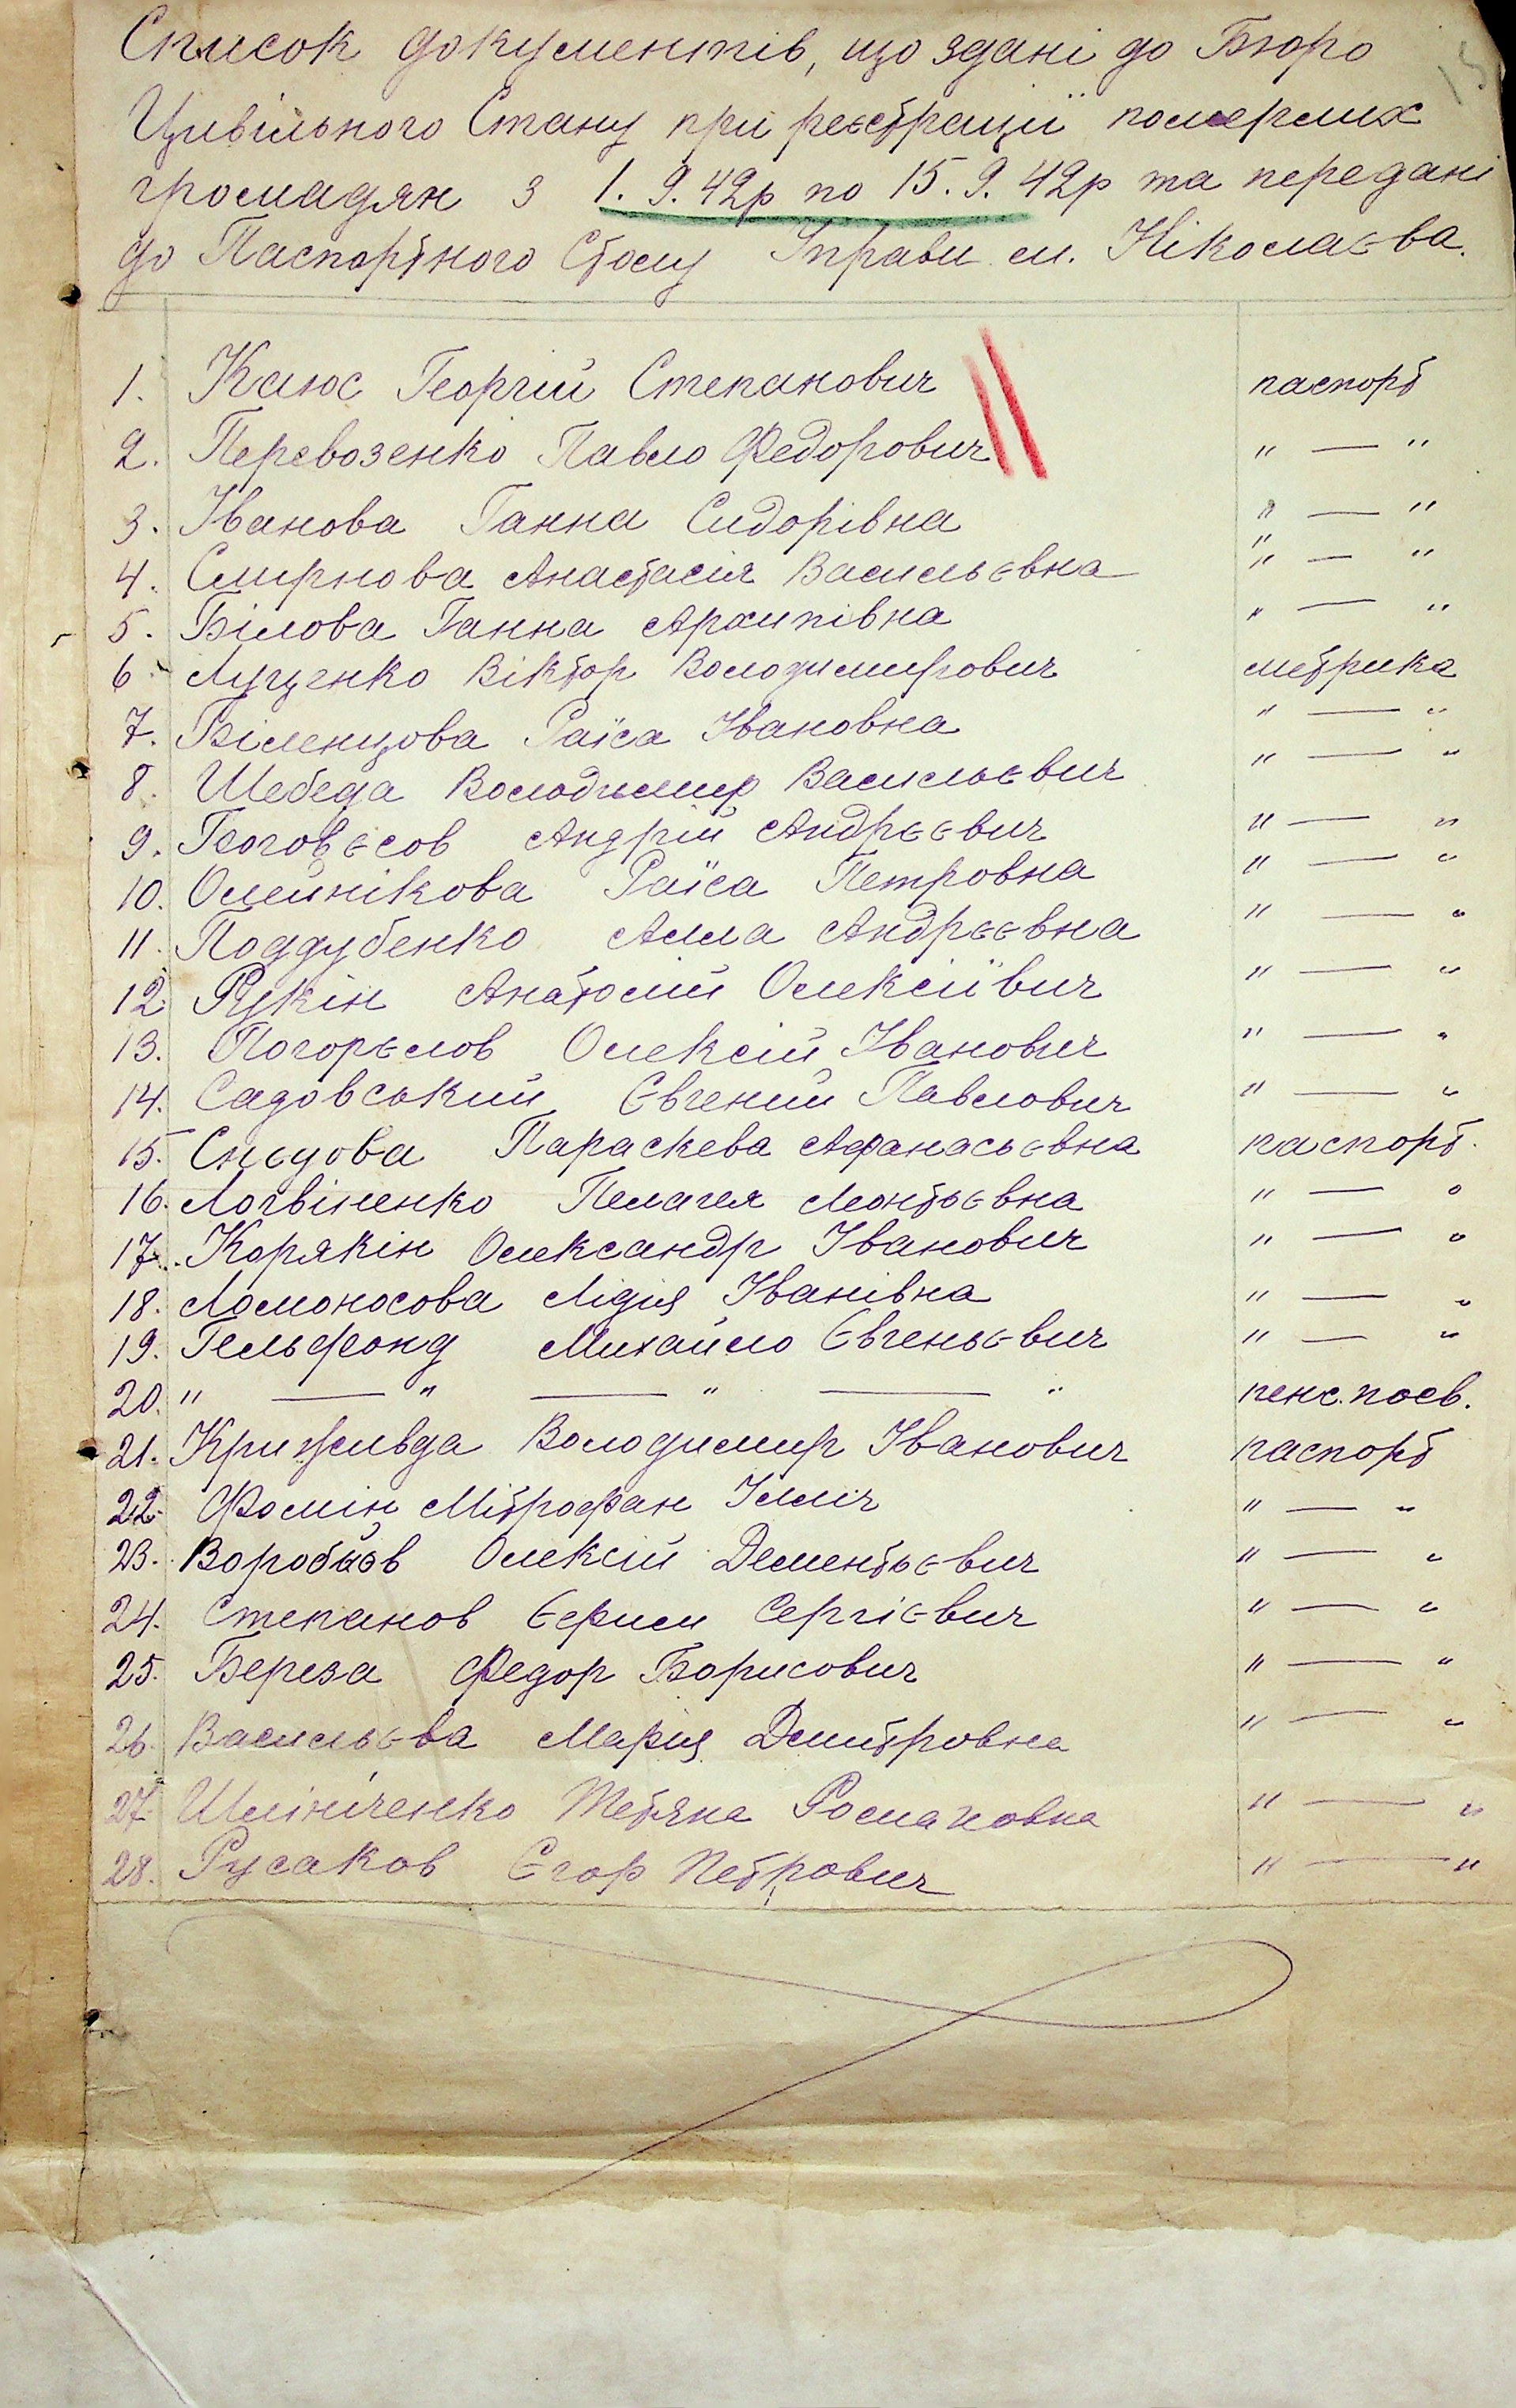 Список документів, що здані до Бюро
Цивільного Стану при реєстрації померлих
громадян з 1.9.42р по 15.9.42р та передані
до Паспортного Столу Управи м. Ніколаєва.
1. Каюс Георгій Степанович паспорт
2. Перевозенко Павло Федорович " — "
3. Іванова Ганна Сидорівна " — "
4. Смирнова Анастасія Васильєвна " — "
5. Білова Ганна Архипівна " — "
6. Луценко Віктор Володимирович метрика
7. Біленцова Раїса Івановна " — "
8. Шебеда Володимир Васильєвич " — "
9. Андрій Андрєєвич " — "
10. Олейнікова Раїса Петровна " — "
11. Поддубенко Алла Андрєєвна " — "
12. Рукін Анатолій Олексіївич " — "
13. Погорєлов Олексій Іванович " — "
14. Садовський Євгений Павлович " — "
15. Параскева Афанасьєвна паспорт.
16. Логвіненко Пелагея Леонтьєвна " — "
17. Корякін Олександр Іванович " — "
18. Ломоносова Лідія Іванівна " — "
19. Гельфонд Михайло Євгеньєвич " — "
20. " — " — " — " пенс. посв.
21. Крижевда Володимир Іванович паспорт
22. Фомін Мітрофан Ілліч " — "
23. Воробйов Олексій Дементьєвич " — "
24. Степанов Єфим Сергієвич " — "
25. Береза Федор Борисович " — "
26. Васильєва Марія Дмитровна " — "
27. Шлініченко Тетяна Романовна " — "
28. Русаков Єгор Петрович " — "